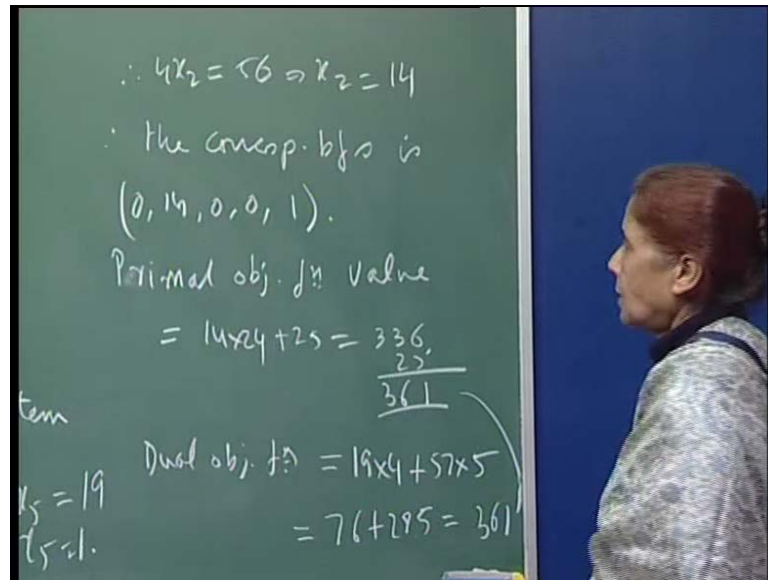 ∴ 4x₂ = 56 ⇒ x₂ = 14
∴ the corresp. bfs is
(0, 14, 0, 0, 1).
Primal obj. fn value
= 14x24 + 25 = 336
25
361
tem
Dual obj. fn = 19x4 + 57x5
x₅ = 19
= 76 + 285 = 361
x₅ = 1.